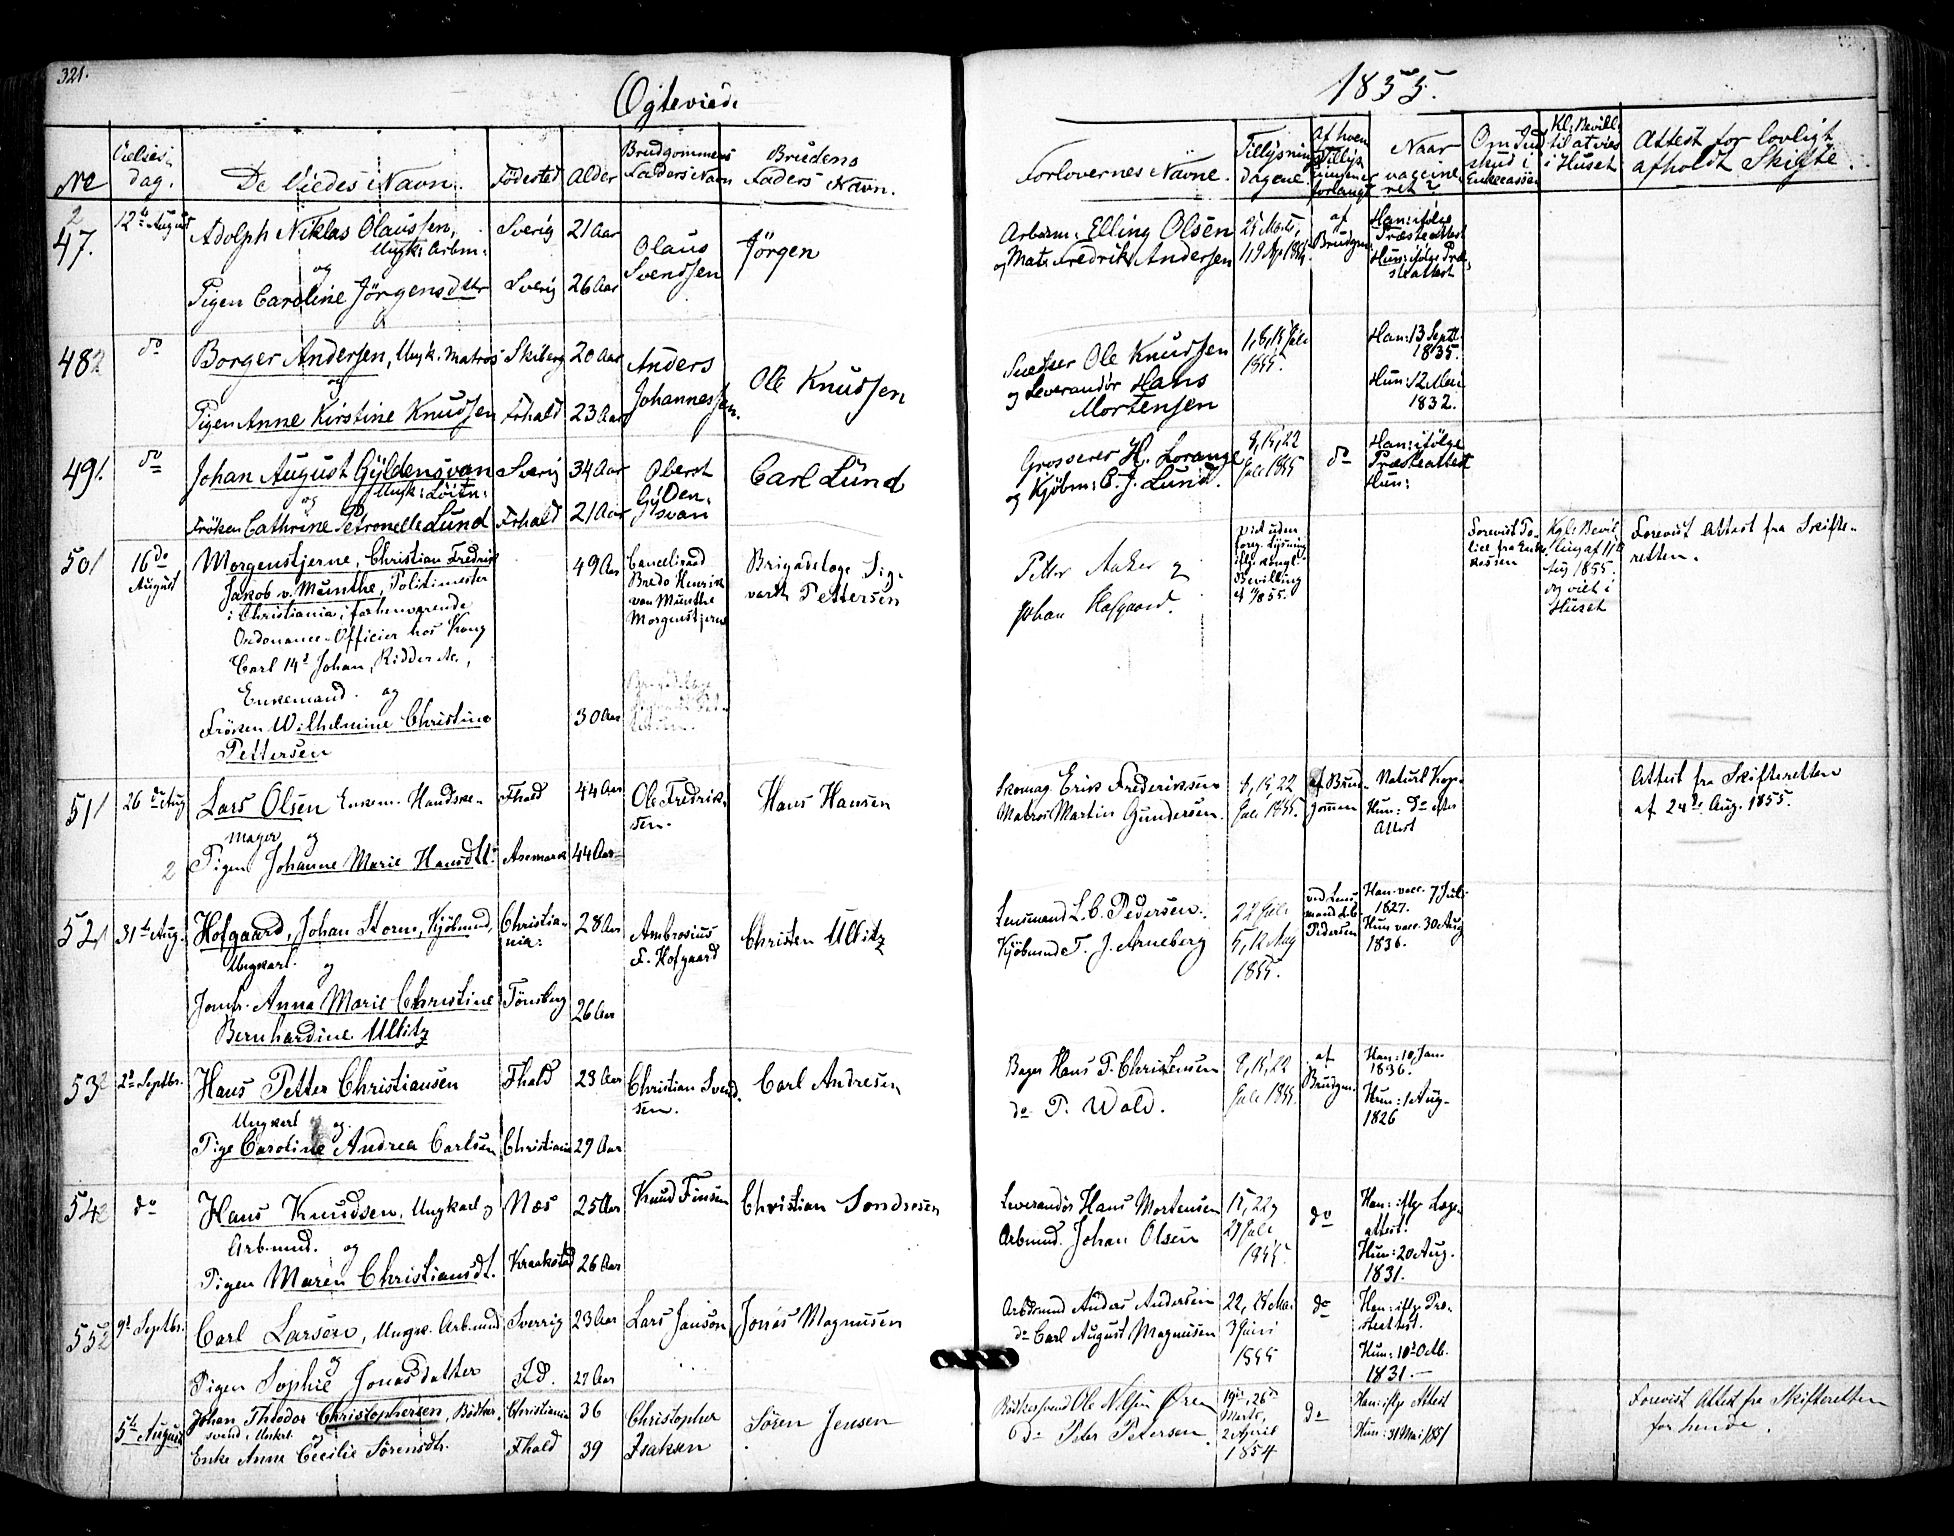 321.
Ogteviede
1855.
No
Vielses-
dag.
De Viedes Navn.
Födested
Alder
Brudgommens
Faders Navn
Brudens
Faders Navn.
Forlovernes Navne.
Tillysnings
Dagene.
Af hvem
Tillys
ningen er
forlangt
Naar
vaccine-
ret?
Om Ind
skud i
Enkecassen
Kl: Bevill:
til at vies
i Huset
Attest for lovligt
afholdt Skifte.
47.
12te August
Adolph Niklas Olaussen,
Ungk: Arbm:
og
Pigen Caroline Jörgensdttr
Sverig
21 Aar
Sverig
26 Aar
Olaus
Svendsen
Jörgen
Arbdm: Elling Olsen
og Mats Fredrik Andersen
af
Brudgm:
Han: ifölge
Præsteattest
Hun: ifölge Præ-
steattest
48
do
Borger Andersen, Ungk. Matros
og
Pigen Anne Kirstine Knudsen
Skiberg
20 Aar
Frhald
23 Aar
Anders
Johannessen.
Ole Knudsen
Snedker Ole Knudsen
og Leverandör Hans
Mortensen
1, 8, 15 Juli
1855.
Han: 13 Septb.
1835.
Hun: 12 Mai
1832.
49
do
Johan August Gyldensvan
og Ungk: Löitn:
Fröken Cathrine Petronelle Lund
Sverig
34 Aar
Frhald
21 Aar
Oberst
Gylden-
svan
Carl Lund
Grosserer H. Lorange
og Kjöbm: C. J. Lund.
8, 15, 22
Juli 1855
do
Han: ifölge
Præsteattest
Hun:
50
16do
August
Morgenstjerne, Christian Fredrik
Jakob v. Munthe, Politimester
i Christiania, forhenværende
Ordonance-Officier hos Kong
Carl 14d Johan, Ridder etc.,
Enkemand. og
Fröken Wilhelmine Christine
Pettersen
49 Aar
30 Aar
Cancelliraad
Bredo Henrik
von Munthe
Morgenstjerne
Brigadelæge Sig-
vardt Pettersen
Petter Anker og
Johan Hofgaard.
viet uden
foreg. Lysning
iflg. kongl.
Bevilling
Forevist Po-
lice fra Enke-
kassen
Kgl: Bevil-
ling af 11te
Aug 1855.
og viet i
Huset
Forevist Attest fra Skifte-
retten.
51
26de Aug
Lars Olsen Enkem. Handske-
mager og
Pigen Johanne Marie Hansdtr.
Fhald
44 Aar
Aremark
44 Aar
Ole Fredrik-
sen.
Hans Hansen
Skomag. Erik Frederiksen
Matros Martin Gundersen.
8, 15, 22
Juli 1855.
af Brud-
gommen
Naturl. Kop.
Hun: Do efter
Attest
Attest fra Skifteretten
af 24de Aug. 1855.
52
31te Aug.
Hofgaard, Johan Storm, Kjöbmd,
Ungkarl. og
Jomfr. Anna Marie Christine
Bernhardine Ullitz
Christia-
nia.
28 Aar
Tönsberg
26 Aar
Ambrosius
F. Hofgaard
Christen Ullitz
Lensmand L. C. Pedersen.
Kjöbmnd T. J. Arneberg
22 Juli,
5, 12 Aug
1855.
ved Lens-
mand L. C.
Pedersen
Han vacc. 7 Juli
1827.
Hun vacc. 30 Aug
1836.
53
2d Septbr.
Hans Petter Christiansen
Ungkarl og
Pige Caroline Andrea Carlsen
Fhald
23 Aar
Christiania
29 Aar
Christian Svend-
sen.
Carl Andresen
Bager Hans P. Christensen
do P. Wold.
8, 15, 22
Juli 1855
af
Brudgm.
Han: 10 Jan.
1836.
Hun: 1 Aug.
1826
54
do
Hans Knudsen, Ungkarl,
Arbmd. og
Pigen Maren Christiansdt.
Næs
25 Aar
Kraakstad
26 Aar
Knud Finsen
Christian Sondresen
Leverandör Hans Mortensen
Arbmd. Johan Olsen
15, 22,
29 Juli
1855.
do
Han: iflge Læge-
attest.
Hun: 20 Aug.
1831.
55
9d Septbr.
Carl Larsen, Ungk. Arbmd
og
Pigen Sophie Jonasdatter
Sverrig
23 Aar
Id.
27 Aar
Lars Janson
Jonas Magnusen
Arbdsmd Anders Andersen
do Carl August Magnusen
3 Juni
1855
do
Han: iflge Præ-
steattest.
Hun: 10d Octb.
1831.
5te August
Johan Theodor Christophersen, Bödker-
svend, Unkrl.
og
Enke Anne Cecilie Sörensdtr.
Christiania
36
Fhald
39
Christopher
Isaksen
Sören Jensen
Bödkersvend Ole Nilsen Ören
do Peter Petersen
19de, 26de
Marts,
2 April
1854
do
Han: iflge Attest
Hun: 31 Mai 1851
Forevist Attest fra Skifteretten
for hende.